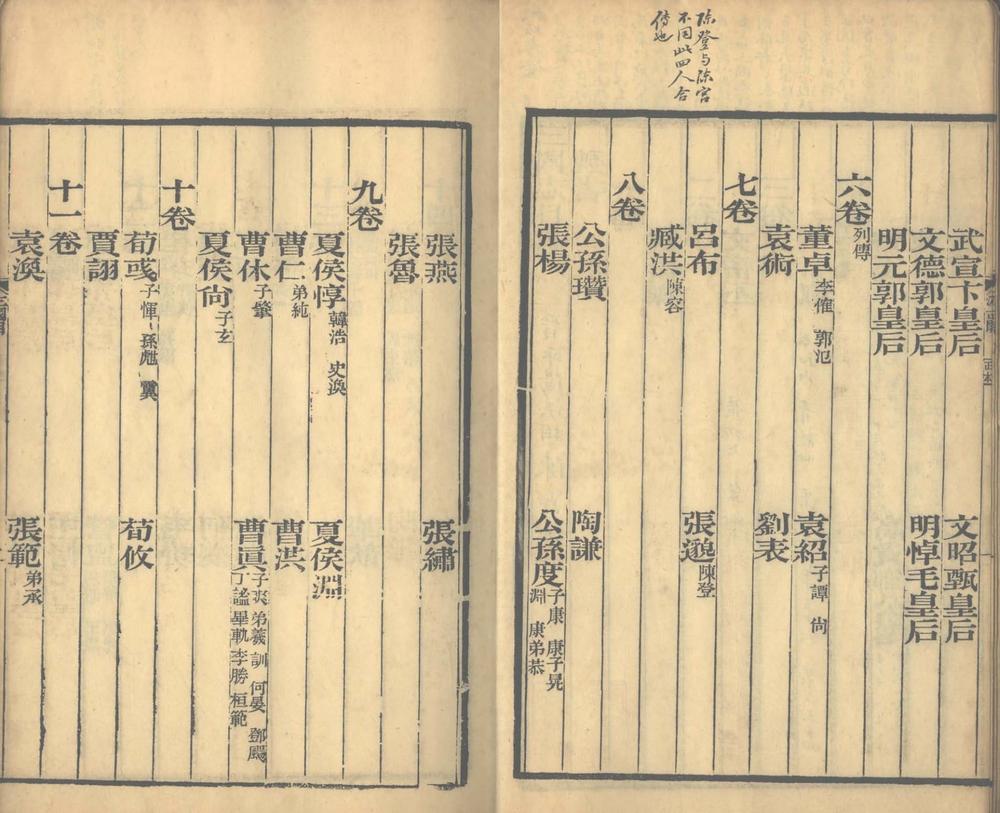 陳登与陳宮
不同此四人合
傳也
武宣卞皇后　文昭甄皇后
文德郭皇后　明悼毛皇后
明元郭皇后
六卷列傳
董卓李傕　郭汜　袁紹子譚　尙
袁術　劉表
七卷
呂布　張邈陳登
臧洪陳容
八卷
公孫瓚　陶謙
張楊　公孫度子康　康子晃　淵　康弟恭
張燕　張繡
張魯
九卷
夏侯惇韓浩　史渙　夏侯淵
曹仁弟純　曹洪
曹休子肇　曹眞子爽　弟羲　訓　何晏　鄧颺　丁謐　畢軌　李勝　桓範
夏侯尙子玄
十卷
荀彧子惲　孫甝　翼　荀攸
賈詡
十一卷
袁渙　張範弟承